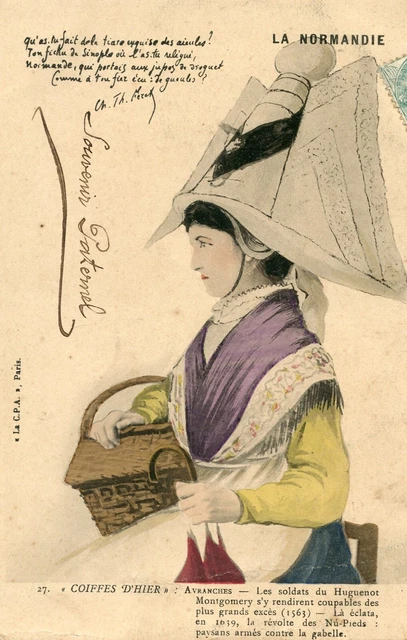 Qu'as-tu fait de la tiare exquise des aïeules ?
Ton fichu de Sinople où l'as-tu relégué,
Normande, qui portais aux jupes de droguet
Comme à ton fier écu : de gueules ?
Ch. Th. Féret
LA NORMANDIE
Souvenir Paternel
« La C.P.A. », Paris.
27. « COIFFES D'HIER » : AVRANCHES — Les soldats du Huguenot
Montgomery s'y rendirent coupables des
plus grands excès (1563) — Là éclata,
en 1639, la révolte des Nu-Pieds :
paysans armés contre la gabelle.